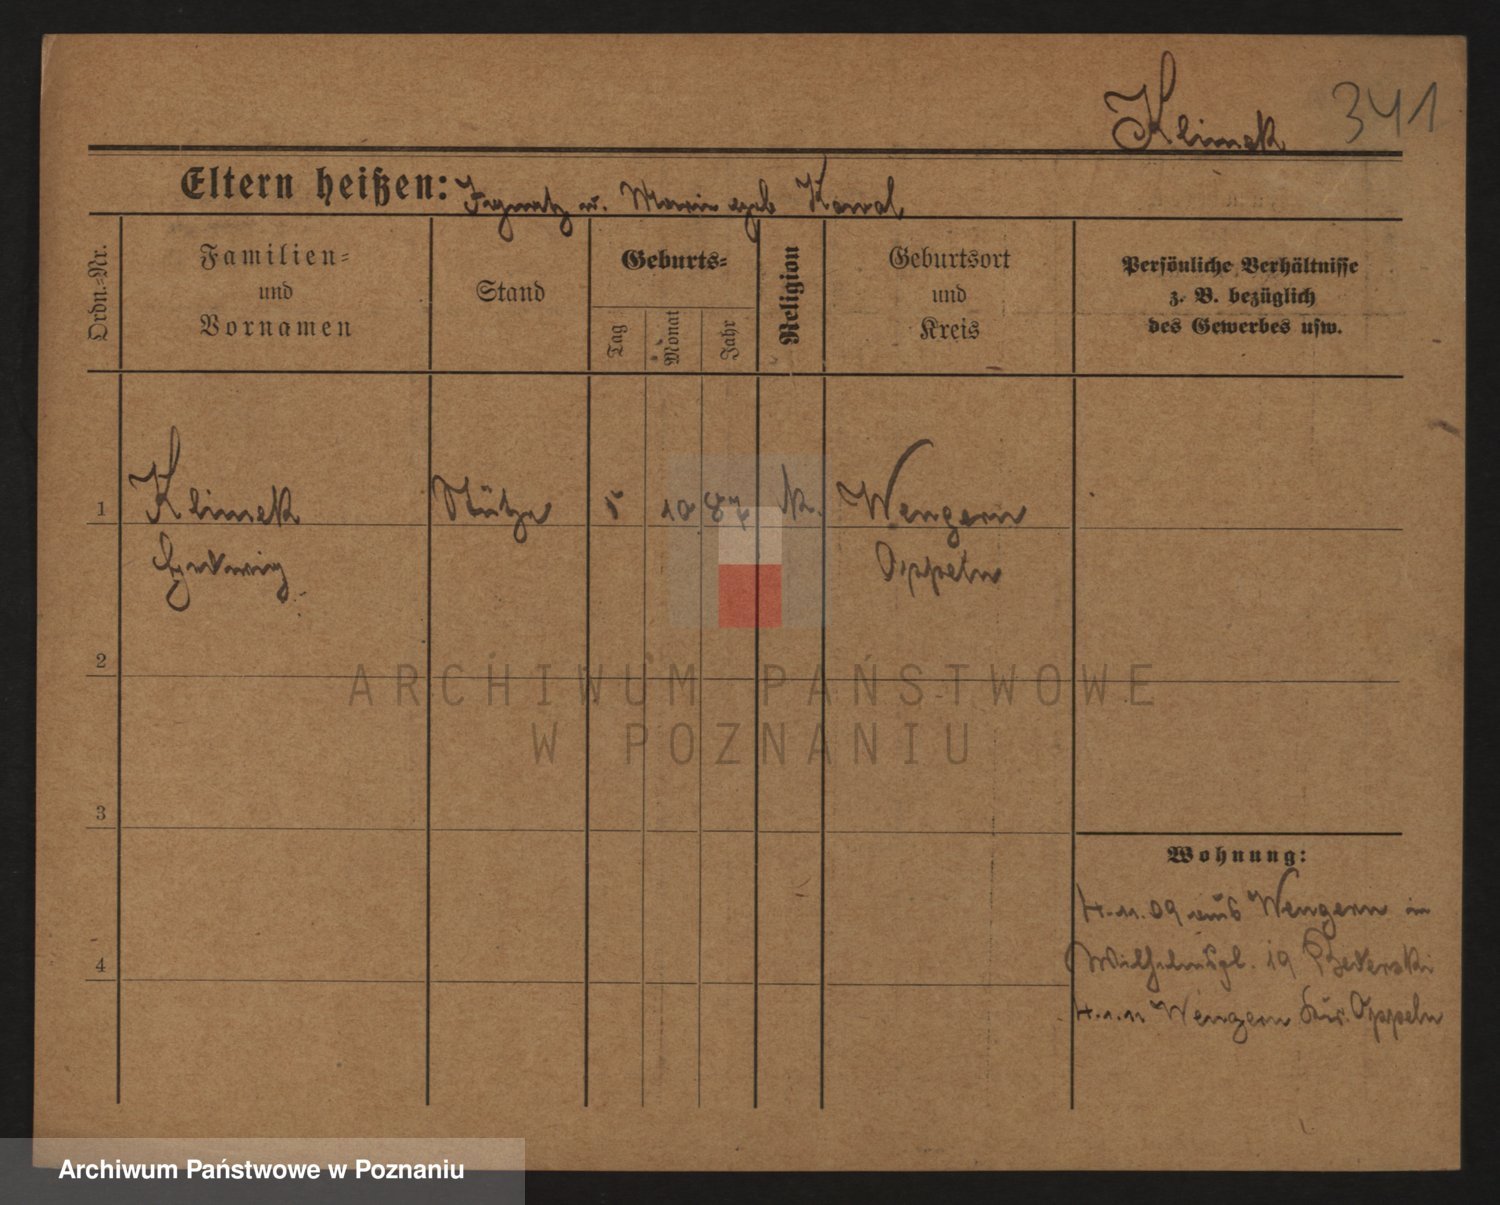 Klimek 341
Eltern heißen: Ignatz u. Marie geb Kowol
Ordn.-Nr.
Familien-
und
Vornamen
Stand
Geburts-
Tag
Monat
Jahr
Religion
Geburtsort
und
Kreis
Persönliche Verhältnisse
z. B. bezüglich
des Gewerbes usw.
1 Klimek Stütze 5 10 87 k. Wengern
Hedwig Oppeln
2
3
4
Wohnung:
4.11.09 aus Wengern in
Wilhelmspl. 19
4.1.11 Wengern Oppeln
ARCHIWUM PAŃSTWOWE
W POZNANIU
Archiwum Państwowe w Poznaniu